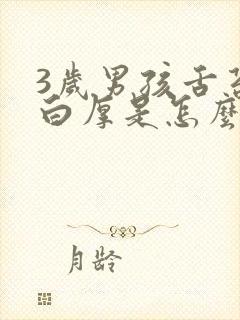 3歲男孩舌苔
白厚是怎麼
月龄